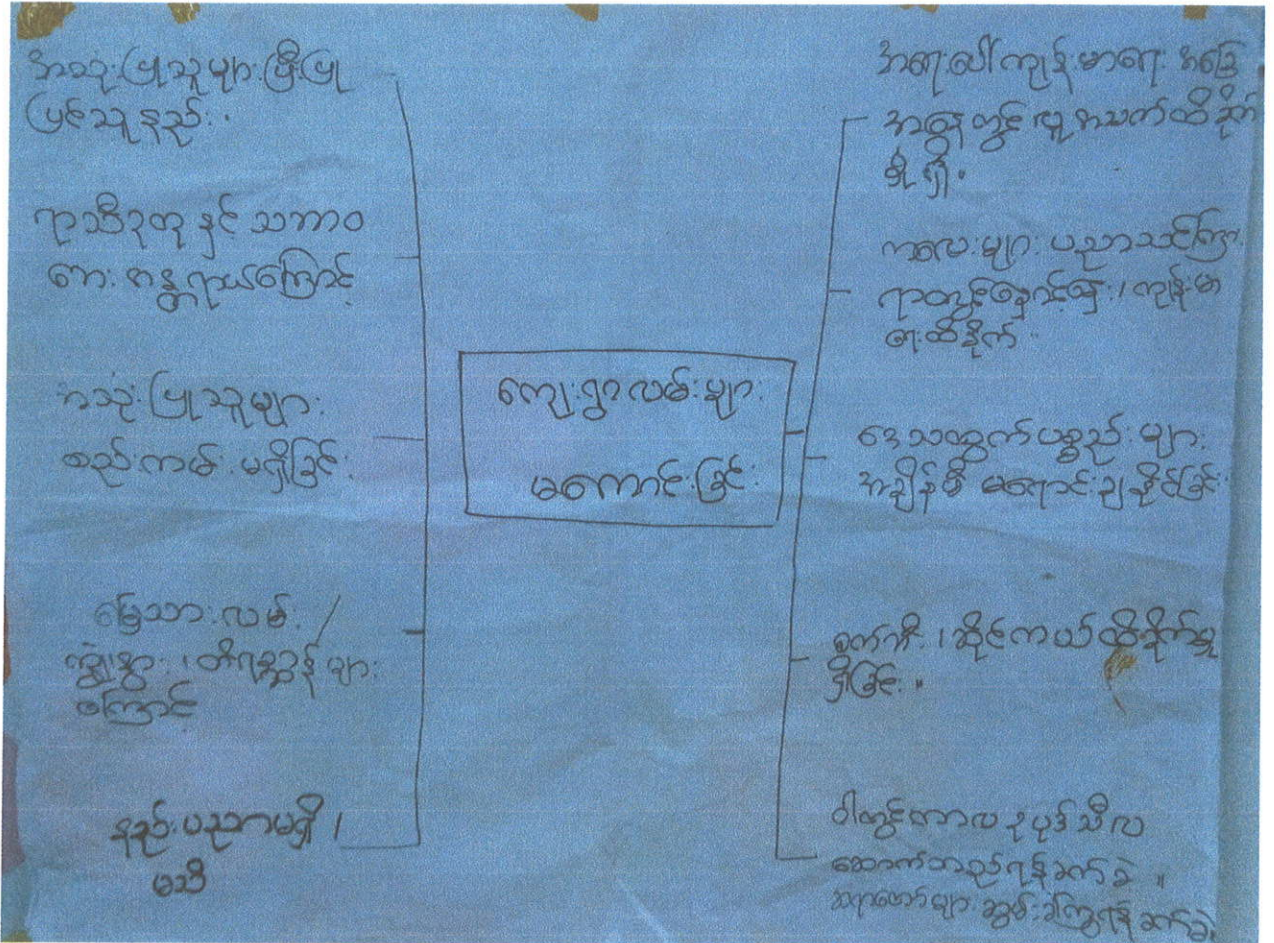 အသုံးပြုသူများပြီးပြု
ပြင်သူနည်း။
ရာသီဥတု နှင့် သဘာဝ
ဘေး အန္တရာယ်ကြောင့်
အသုံးပြုသူများ
စည်းကမ်း မရှိခြင်း
မြေသားလမ်း
ကျွဲ၊နွား၊ တိရစ္ဆာန်များ
ကြောင့်
နည်းပညာမရှိ၊
မသိ
ကျေးရွာလမ်းများ
မကောင်းခြင်း
အရေးပေါ်ကျန်းမာရေး အခြေ
အနေတွင် လူ့အသက်ထိခိုက်
မှုရှိ။
ကလေးများ ပညာသင်ကြား
ရာတွင်နှောင့်နှေး၊ ကျန်းမာ
ရေးထိခိုက်
ဒေသထွက်ပစ္စည်းများ
အချိန်မီ မရောင်းချနိုင်ခြင်း
စက်ဘီး၊ ဆိုင်ကယ်ထိခိုက်မှု
ရှိခြင်း။
ဝါတွင်းကာလ ဥပုဒ်သီလ
ဆောက်တည်ရန်ခက်ခဲ။
ဆရာတော်များ ဆွမ်းခံကြွရန်ခက်ခဲ။